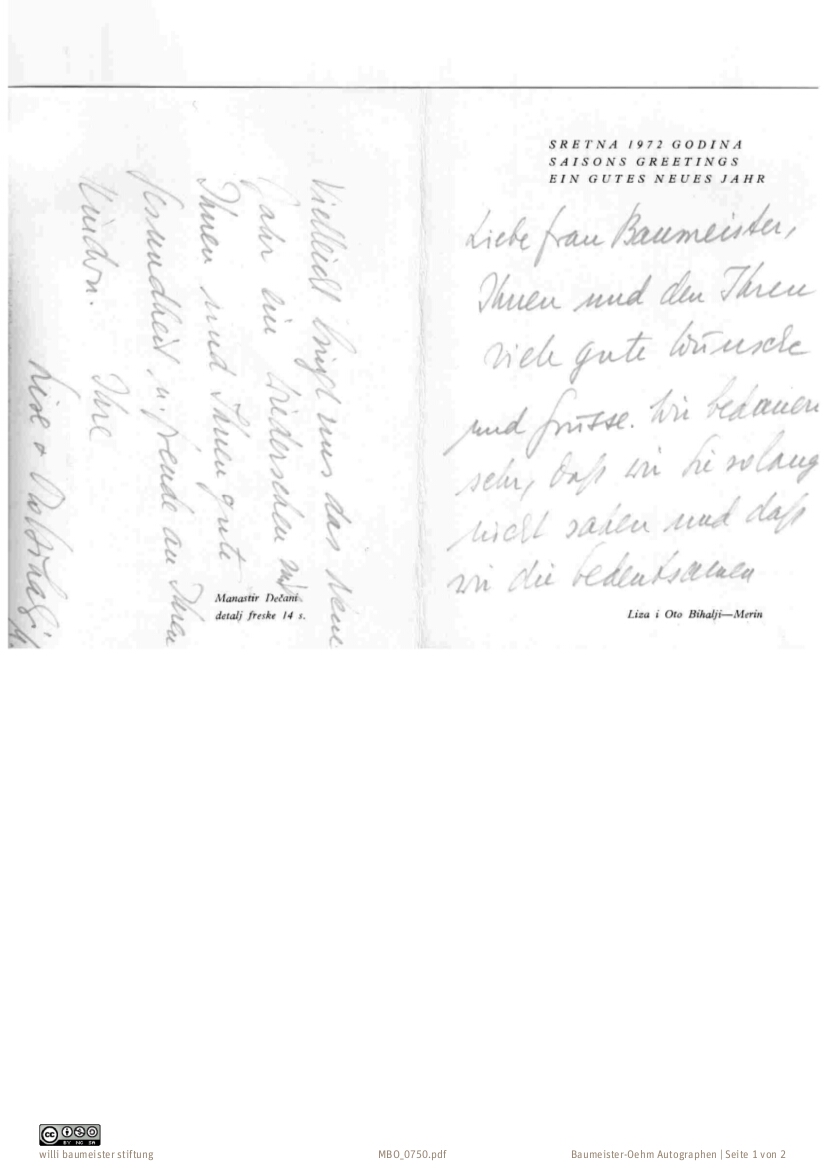 SRETNA 1972 GODINA
SAISONS GREETINGS
EIN GUTES NEUES JAHR
Liebe Frau Baumeister,
Ihnen und den Ihren
viele gute Wünsche
und Grüsse. Wir bedauern
sehr, daß wir Sie so lang
nicht sahen und daß
wir die bedeutsamen
Liza i Oto Bihalji—Merin
Vielleicht bringt uns das neue
Jahr ein Wiedersehen mit
Ihnen und Ihnen gute
Gesundheit u. Freude an Ihren
Kindern. Ihre
Lise + Oto Bihalji
M.
Manastir Dečani.
detalj freske 14 s.
CC BY NC SA
willi baumeister stiftung
MBO_0750.pdf
Baumeister-Oehm Autographen | Seite 1 von 2